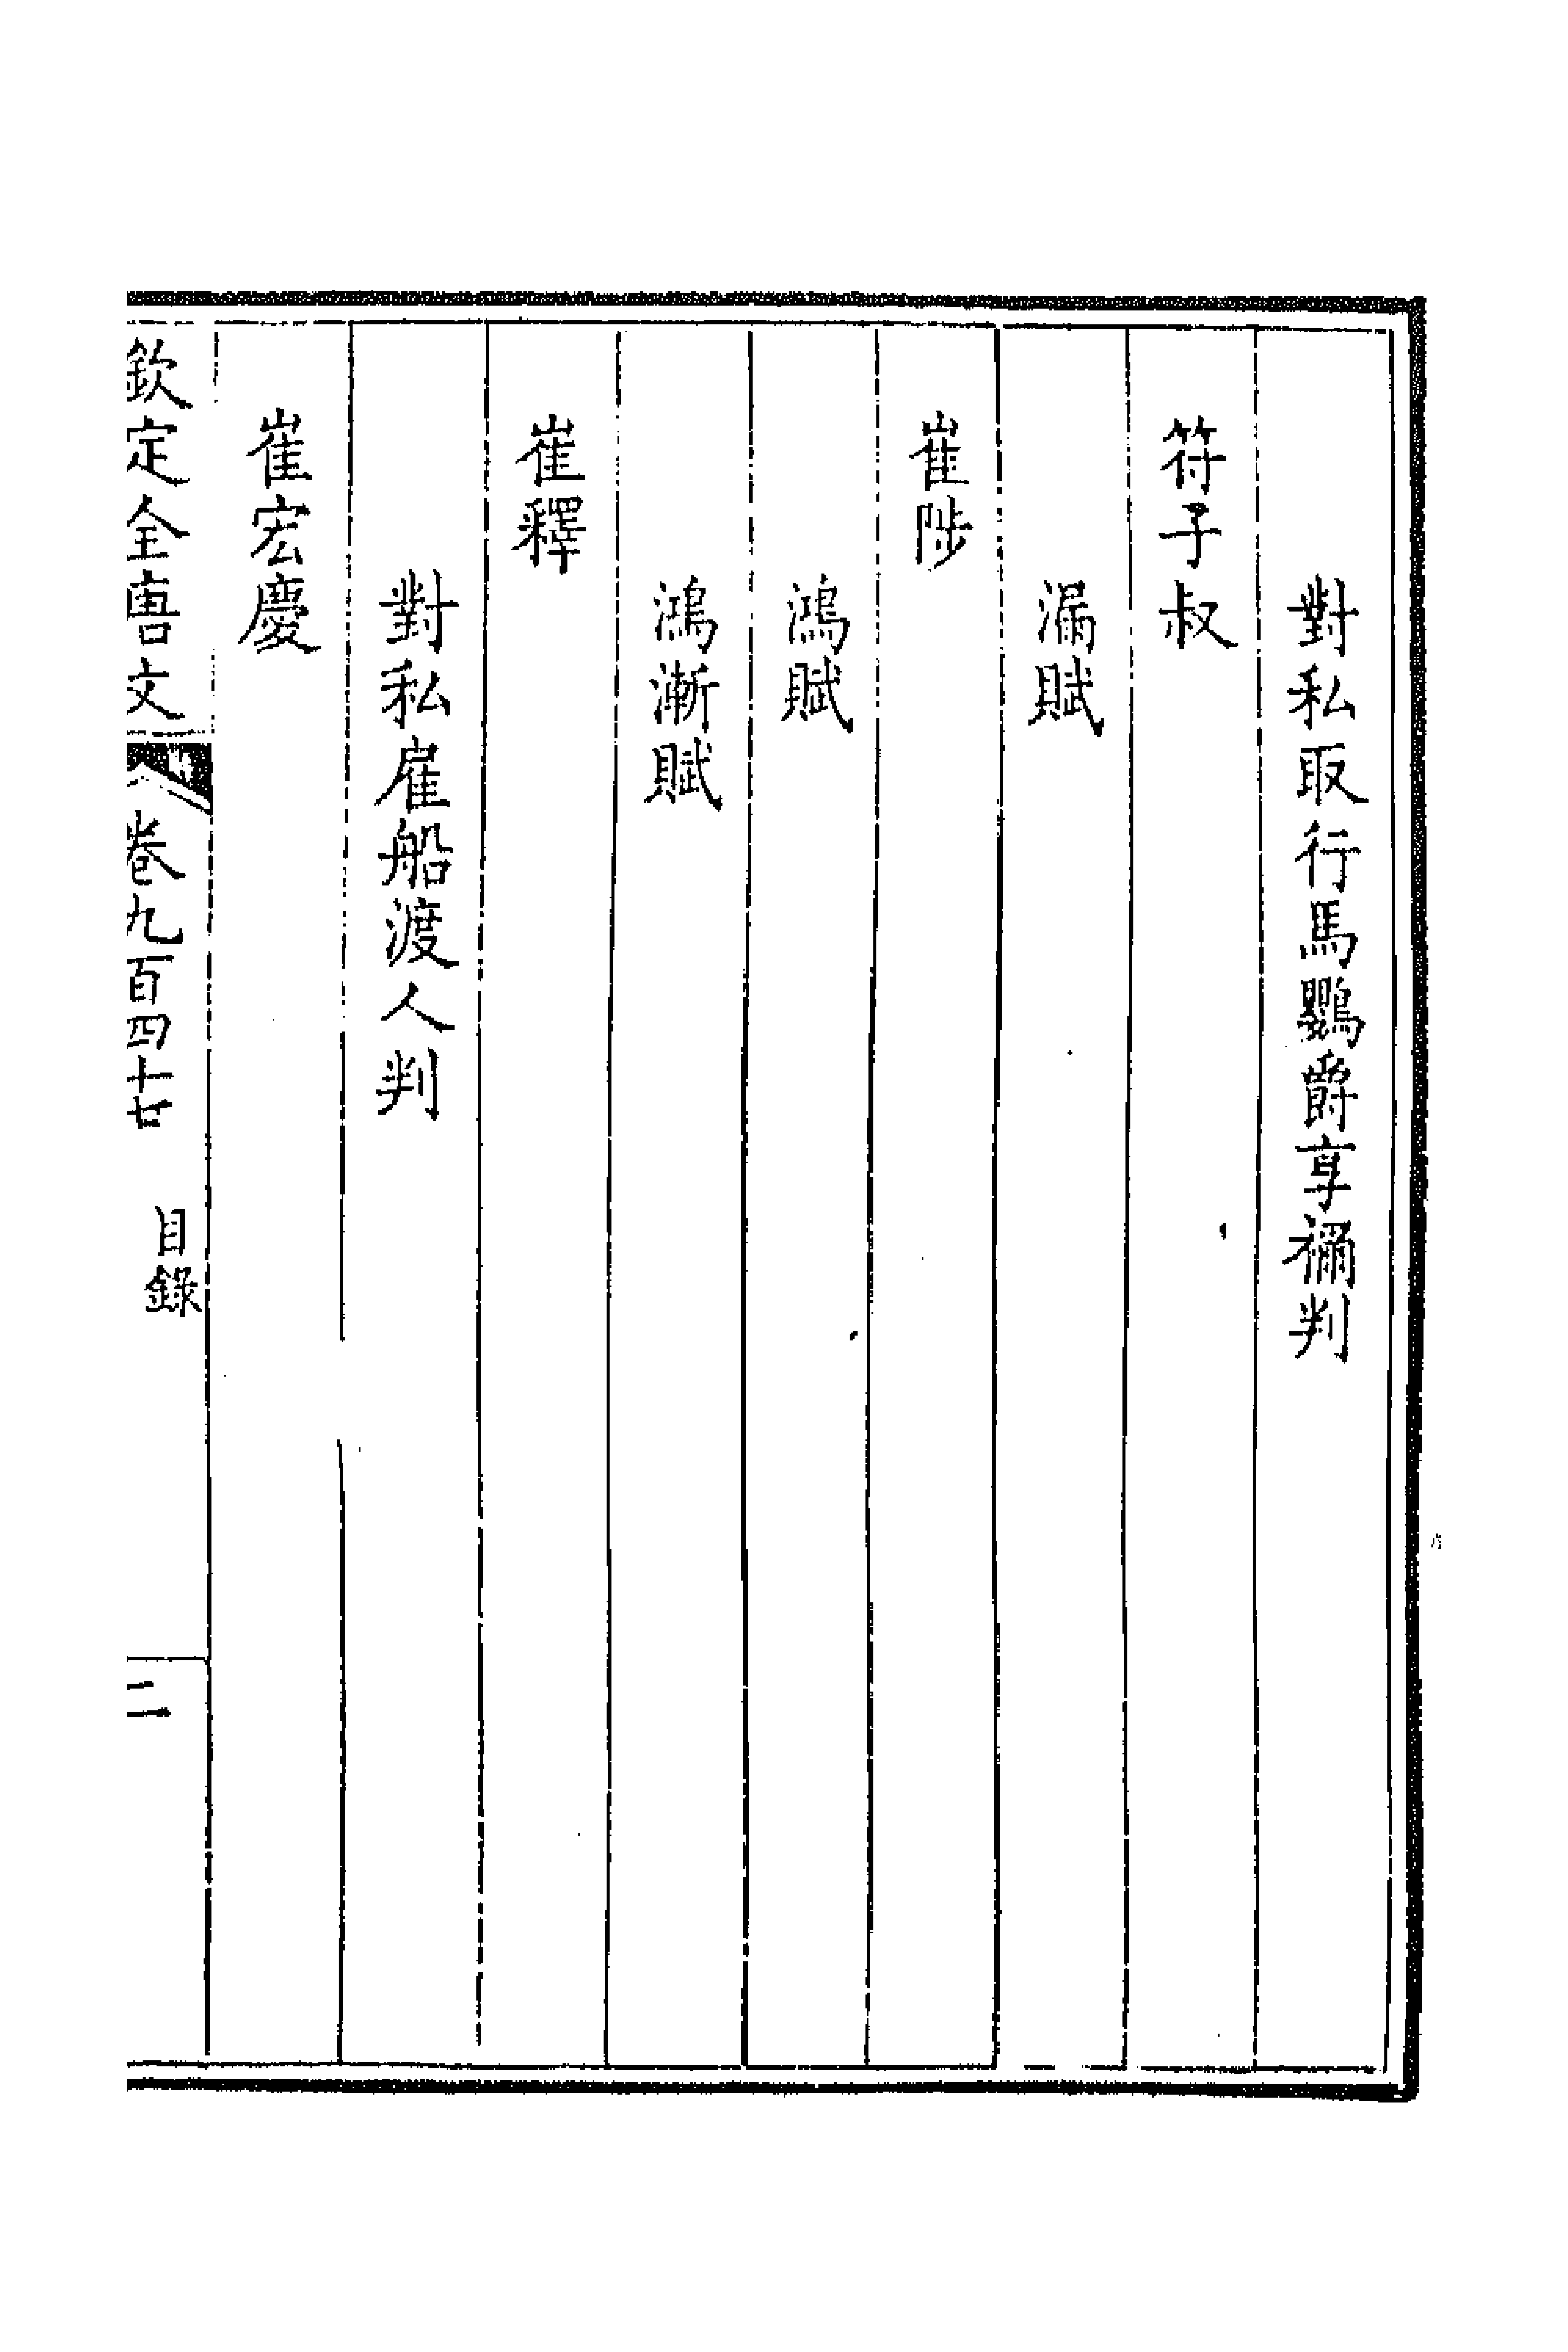 對私取行馬鸚爵享禰判
符子叔
漏賦
崔陟
鴻賦
鴻漸賦
崔釋
對私雇船渡人判
崔宏慶
欽定全唐文
卷九百四十七
目錄
二